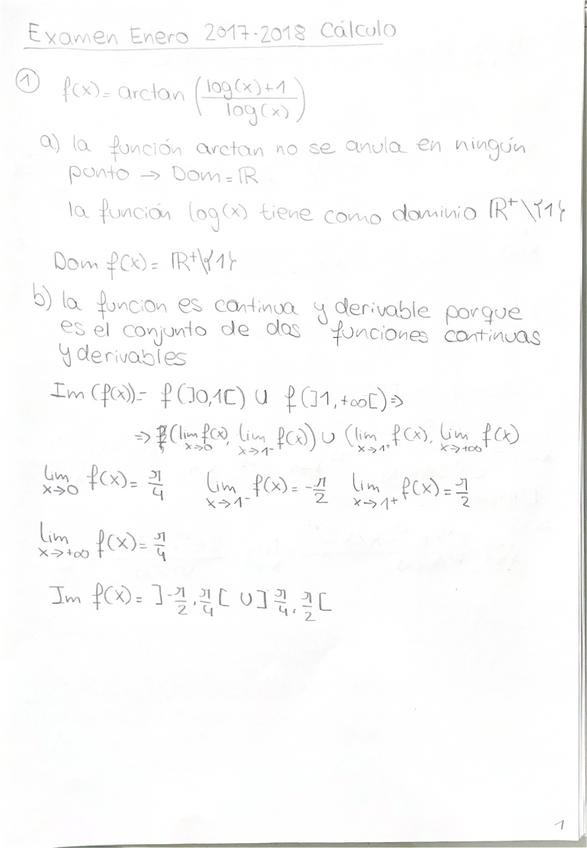 Examen Enero 2017-2018 Cálculo
① f(x)= arctan (log(x)+1 / log(x))
a) la función arctan no se anula en ningún
punto → Dom = ℝ
la función log(x) tiene como dominio ℝ⁺\{1}
Dom f(x)= ℝ⁺\{1}
b) la funcion es continua y derivable porque
es el conjunto de dos funciones continuas
y derivables
Im (f(x))= f(]0,1[) ∪ f(]1,+∞[)⇒
⇒ (lim x→0 f(x), lim x→1⁻ f(x)) ∪ (lim x→1⁺ f(x), lim x→+∞ f(x)
lim x→0 f(x)= π/4 lim x→1⁻ f(x)= -π/2 lim x→1⁺ f(x)= π/2
lim x→+∞ f(x)= π/4
Im f(x)= ]-π/2, π/4[ ∪ ]π/4, π/2[
1